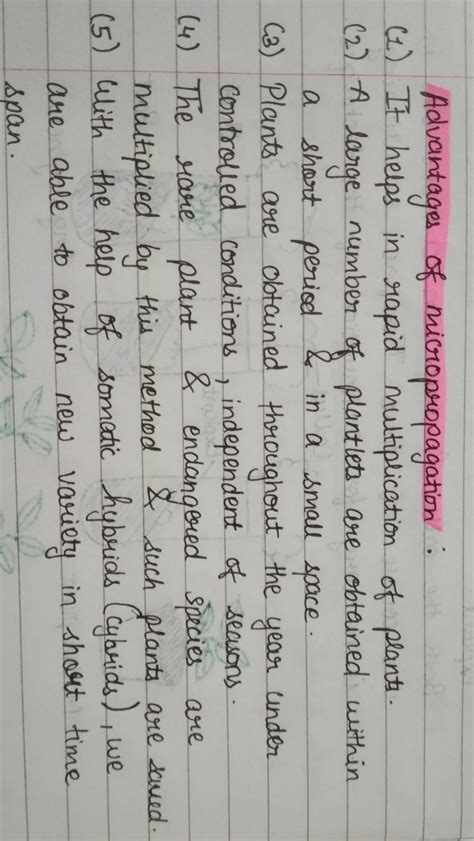 Advantages of micropropagation :
(1) It helps in rapid multiplication of plants.
(2) A large number of plantlets are obtained within
a short period & in a small space.
(3) Plants are obtained throughout the year under
controlled conditions, independent of seasons.
(4) The rare plant & endangered species are
multiplied by this method & such plants are saved.
(5) With the help of somatic hybrids (cybrids), we
are able to obtain new variety in short time
span.